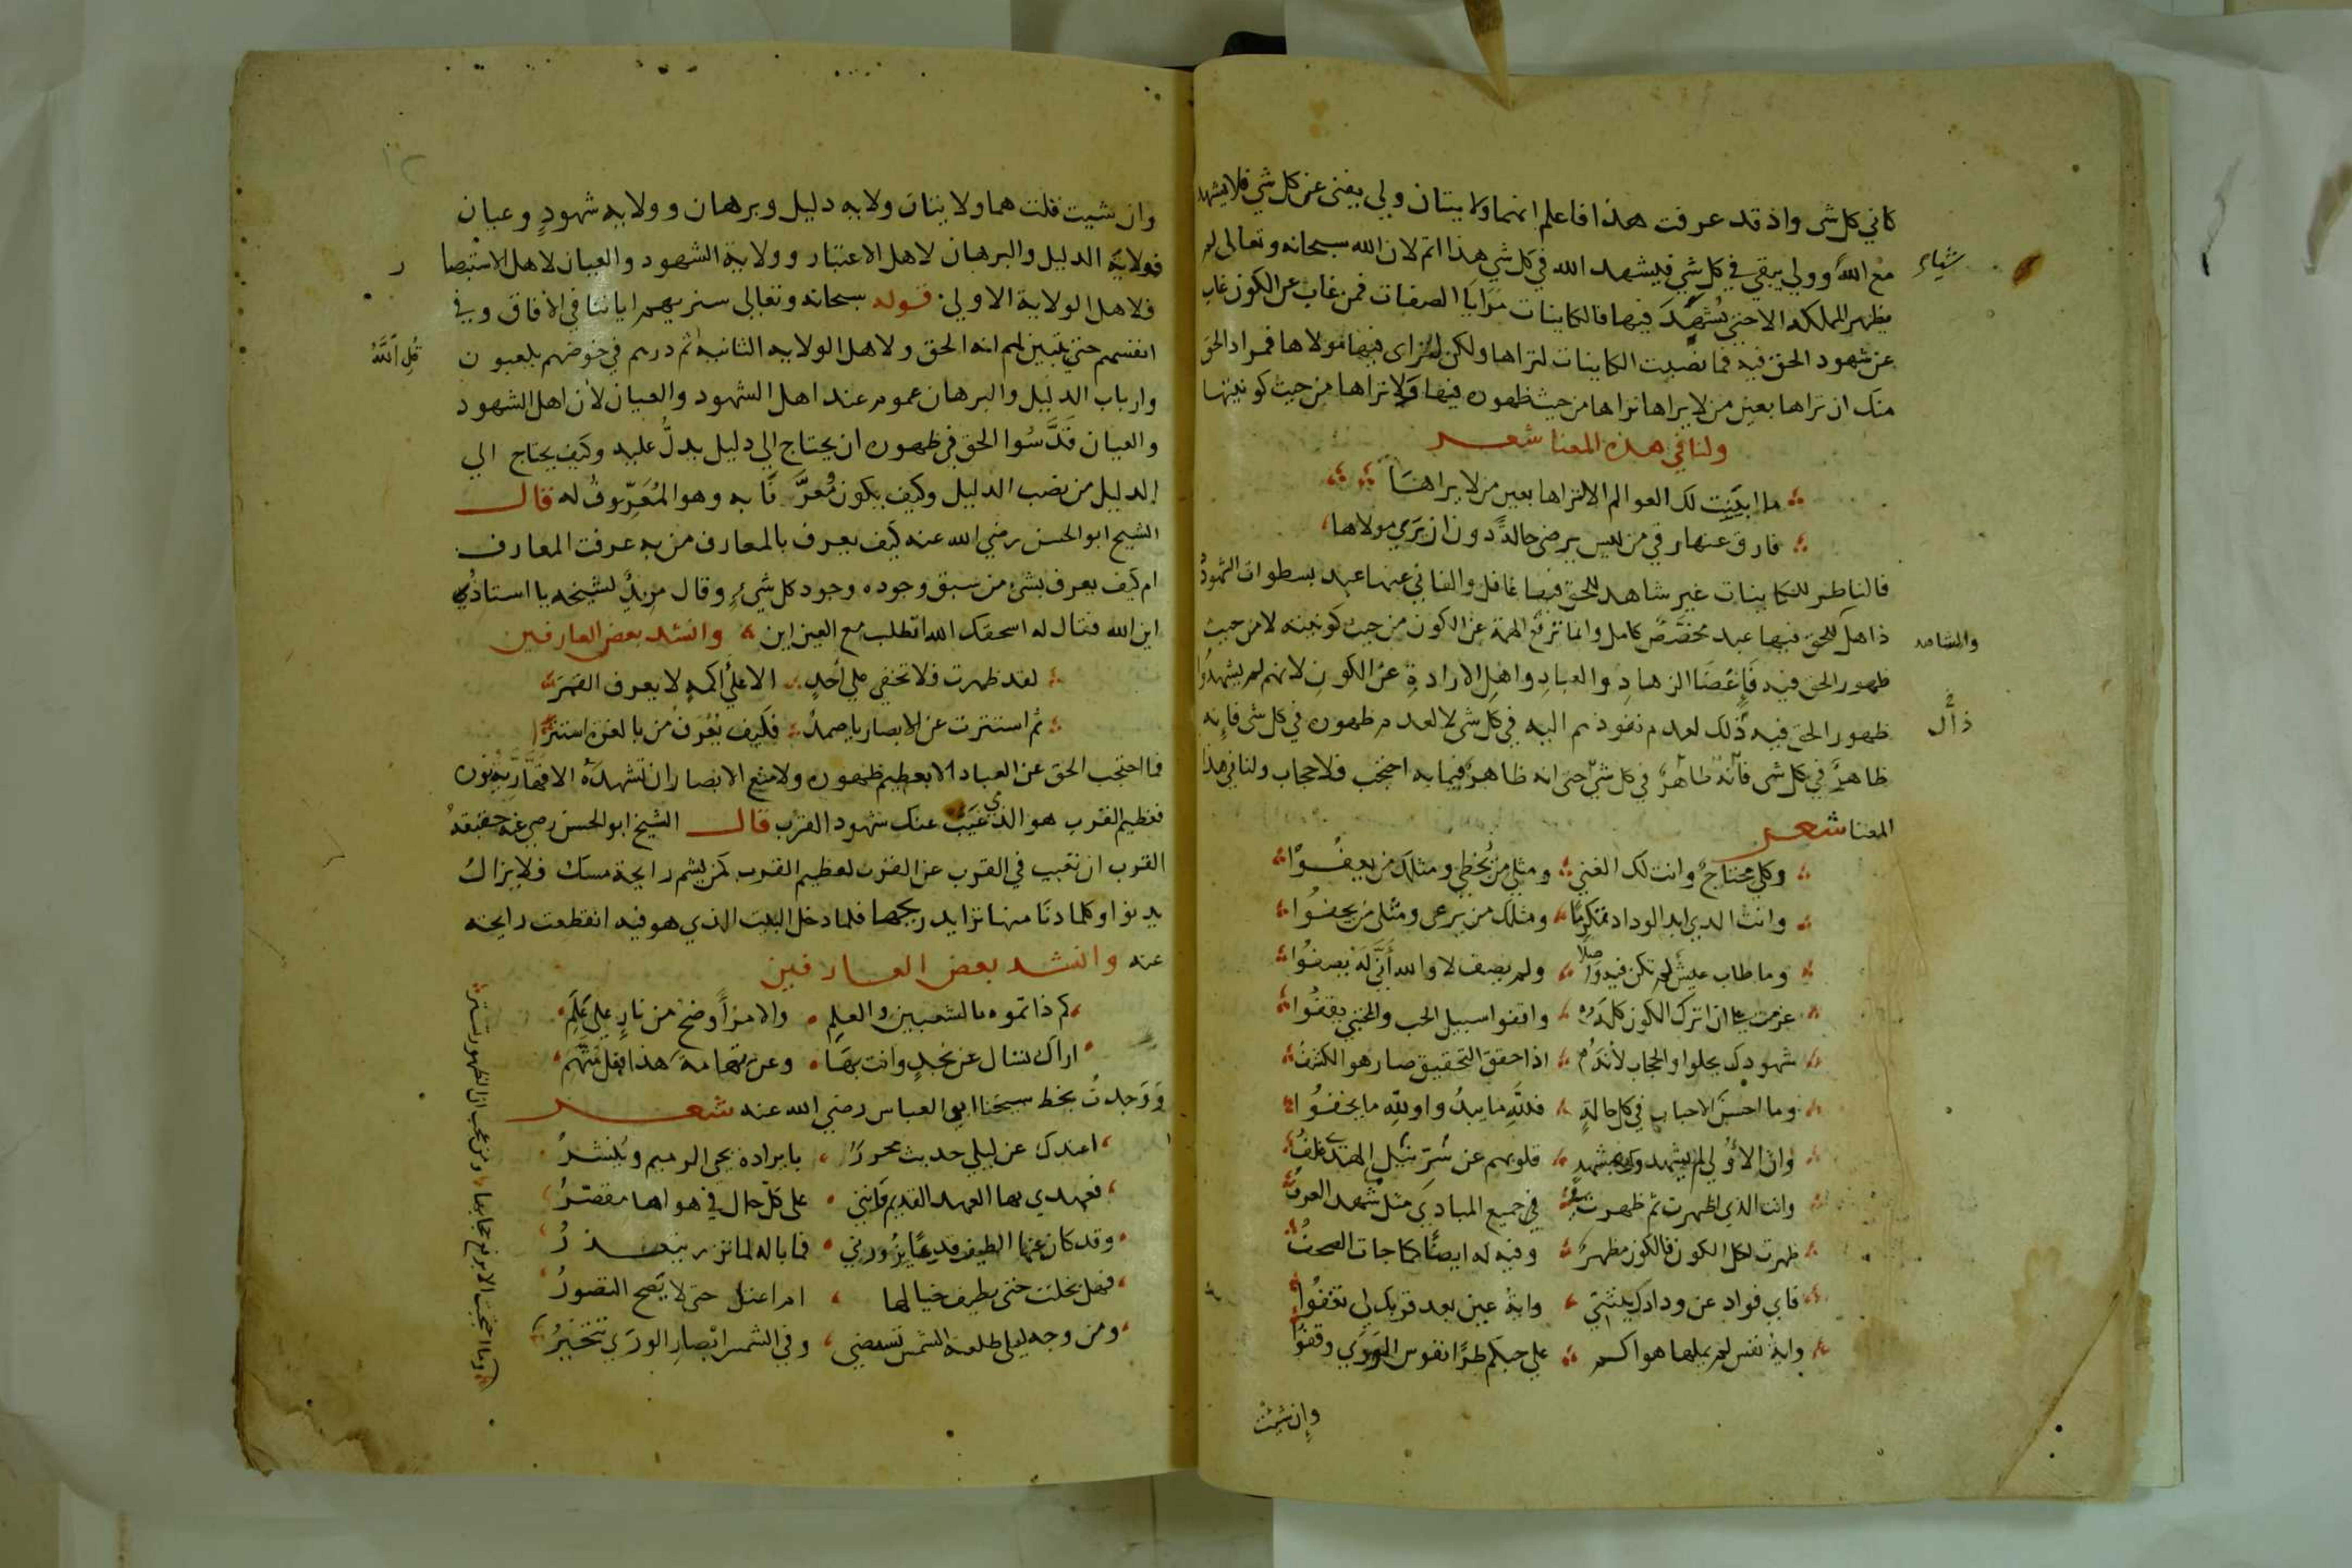 كاني كل شى واذ قد عرفت هذا فاعلم انهما ولايتان ولي يفنى عن كل شي فلا يشهد
مع الله وولي يبقي في كل شي فيشهد الله في كل شي هذا اتم لان الله سبحانه وتعالى لم
يظهر المملكه الا حتي يُشهَدَ فيها فالكاينات مَرَايَا الصفات فمن غاب عن الكون غاب
عن شهود الحق فيه فما نصبت الكاينات لتراها ولكن لترى فيها مولاها فمراد الحق
منك ان تراها بعين من لا يراها تراها من حيث ظهوره فيها ولا تراها من حيث كونيتها
ولنا في هذه المعنا شعر
ما ابينت لك العوالم الا لتراها بعين من لا يراها
فارق عنها رقي من ليس يرضى حالةً دون ان يَرَي مولاها
فالناظر للكاينات غير شاهد للحق فيها غافل والفاني عنها عبد بسطوات الشهود
ذاهل للحق فيها عبد مخصَّصٌ كامل وانما ترفع الهمة عن الكون من حيث كونيته لا من حيث
والشاهد
ظهور الحق فيه الزهادِ والعبادِ واهلِ الارادةِ عن الكون لانهم لم يشهدُوا
ظهور الحق فيه ذلك لعدم نفوذهم اليه في كل شى لا لعدم ظهوره في كل شى فإنه
ظاهرٌ في كل شى حتى انه ظاهرٌ فيما به احتجب فلا حجاب ولنا في هذا
المعنا شعر
وكلي محتاجٌ وانت لك الغني ومثلي من يُخطي ومثلك من يعفُوا
وانت الذي ابد الوداد تكرمًا ومثلك من يرعى ومثلي من يجفُوا
وما طاب عيشٌ لم تكن فيه واصلًا ولم يصف لا والله أنَّى له يصفُوا
عزمت على ان اترك الكون كله واقفوا سبيل الحب والمجتبي يقفُوا
شهودك يجلوا والحجاب لأنه اذا حقق التحقيق صار هو الكشفُ
وما احسنَ الاحباب في كل حالةٍ فللَّه ما يبدُوا وللّه ما يخفُوا
وان الأولى لم يشهدوك بمشهدٍ قلوبهم عن نيل سرّ الهدى غلفُ
وانت الذي اظهرت ثم ظهرت في جميع المبادي مثل شهد العرفُ
ظهرت لكل الكون فالكون مظهرٌ وفيه له ايضًا كما جات الصحفُ
فاي فواد عن ودادك ينثني واية عين بعد قربك لي تغفُوا
واية نفس لم يملها هواكم على حبكم طرًّا نفوس الورَي وقفُوا
وان شئت
وان شيت قلت هما ولايتان ولايه دليل وبرهان وولايه شهودٍ وعيان
فولاية الدليل والبرهان لاهل الاعتبار وولاية الشهود والعيان لاهل الاستبصا
ر
فلاهل الولاية الاولي قوله سبحانه وتعالى سنريهم اياتنا في الافاق وفي
انفسهم حتي يتبين لهم انه الحق ولاهل الولايه الثانيه ثم ذرهم في خوضهم يلعبون
قُلِ اللَّهُ
وارباب الدليل والبرهان عموم عند اهل الشهود والعيان لان اهل الشهود
والعيان قدَّسُوا الحق في ظهوره ان يحتاج الى دليل يدلُّ عليه وكيف يحتاج الي
الدليل من نصب الدليل وكيف يكون مُعرَّفًا به وهو المُعَرِّفُ له قال
الشيخ ابو الحسن رضي الله عنه كيف يعرف بالمعارف من به عرفت المعارف
ام كيف يعرف بشئ من سبق وجوده وجود كل شيءٍ وقال مريدٌ لشيخه يا استاذي
اين الله فقال له اسحقك الله اتطلب مع العين اين وانشد بعض العارفين
لقد ظهرت فلا تخفي على أحدٍ الا على أكمهٍ لا يعرف القمرَ
ثم استترت عن الابصار يا صمدٌ فكيف يُعْرَفُ من بالعزة استترا
فما احتجب الحق عن العباد الا بعظيم ظهوره ولا منع الابصار ان تشهدَهُ الا قهَّاريّة نوره
فعظيم القرب هو الذي غيّب عنك شهود القرب قال الشيخ ابو الحسن رضي عنه حقيقة
القرب ان تغيب في القرب عن القرب لعظيم القرب كمن يشم رايحة مسك فلا يزالُ
يدنوا وكلما دنَا منها تزايد ريحها فلما دخل البيت الذي هو فيه انقطعت رايحته
عنه وانشد بعض العارفين
كم ذا تموه بالشعبين والعلم والامر أوضحُ من نارٍ على علَمِ
اراك تسال عن نجدٍ وانت بهَا وعن تهامة هذا فعل مُتَّهِمِ
وَوَجدتُ بخط شيخنا ابي العباس رضي الله عنه شعر
اعندك عن ليلي حديث محررٌ بايراده يحي الرميم ويُنشَرُ
فعهدي بها العهد القديم فإنني على كلّ حال في هواها مقصّرُ
وقد كان عنها الطيف قدمًا يزورني فما باله لما تزر يتعذرُ
فهل بخلت حتى بطيف خيالها ام اعتل حتى لا يَصح التصورُ
ومن وجه ليلى طلعة الشمس تستضي وفي الشمس ابصار الورَي تتحيَّرُ
وما احتجبت الا برفع حجابها ومن عجب ان الظهور تستر